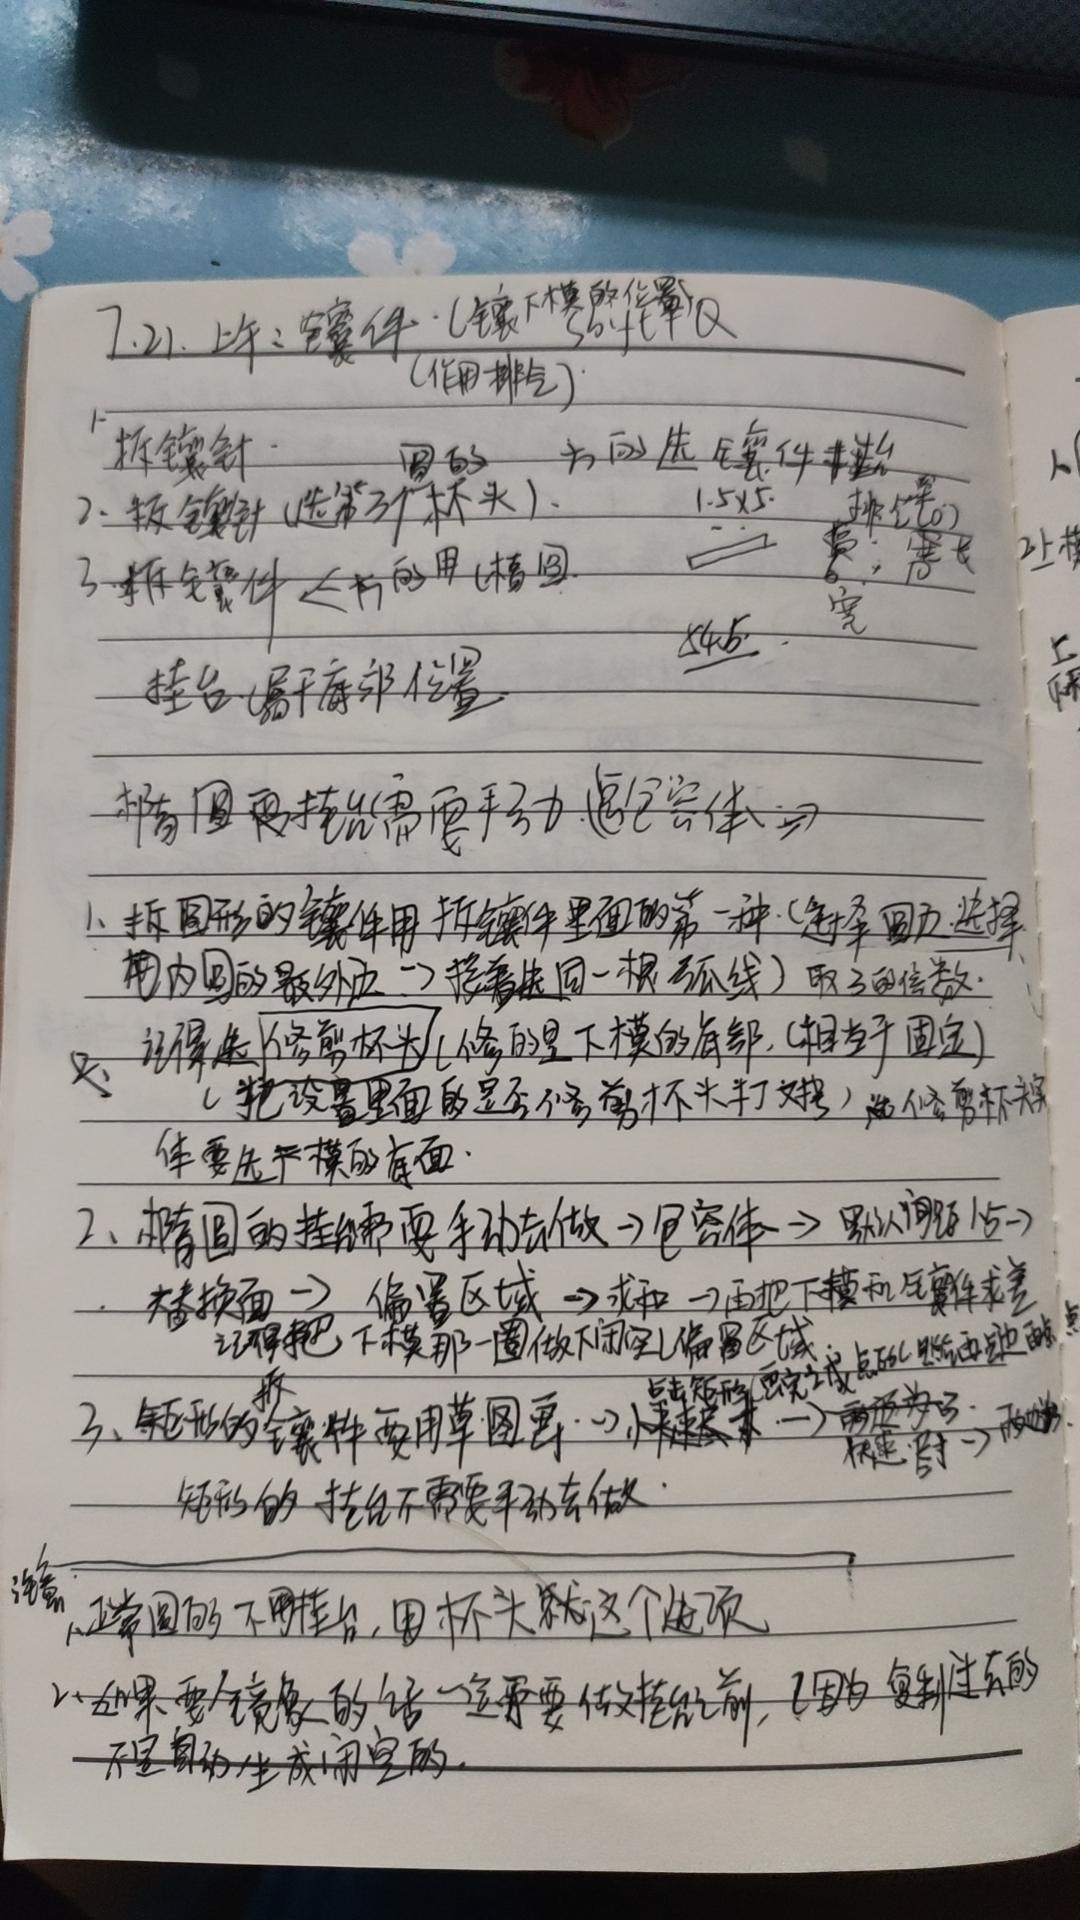 7.21. 上午: 镶件.(镶下模的位置)
Shift Q
(作用排气)
1. 拆镶针.
圆的 方的选镶件挂台
2. 拆镶針(选第3个杯头).
1.5x5.
3. 拆镶件 方的用 椭圆
宽
挂台(属于底部位置
椭圆要挂台需要手动(包容体⇒
1. 拆圆形的镶件用拆镶件里面的第一种.(选择圆边.选择
内圆的最外边→接着选同一根弧线)取3的倍数.
记得选修剪杯头(修的是下模的底部,(相当于固定)
(把设置里面的是否修剪杯头打对勾)选修剪杯头实
体要选下模的底面.
2、椭圆的挂台都要手动去做→包容体→默认间距1.5→
替换面→偏置区域→求和→再把下模和镶件求差
记得把下模那一圈做下闲空(偏置区域
3、矩形的拆镶件要用草图画.→
点击矩形
矩形的挂台不需要手动去做.
注意
1、正常圆的不用挂台,用杯头就这个选项
2、如果要镜象的话一定需要做挂台之前,(因为复制过去的
不是自动生成闲空的.